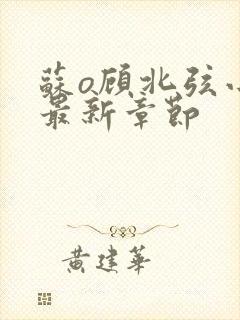 蘇o顾北弦小
最新章節
黄建華